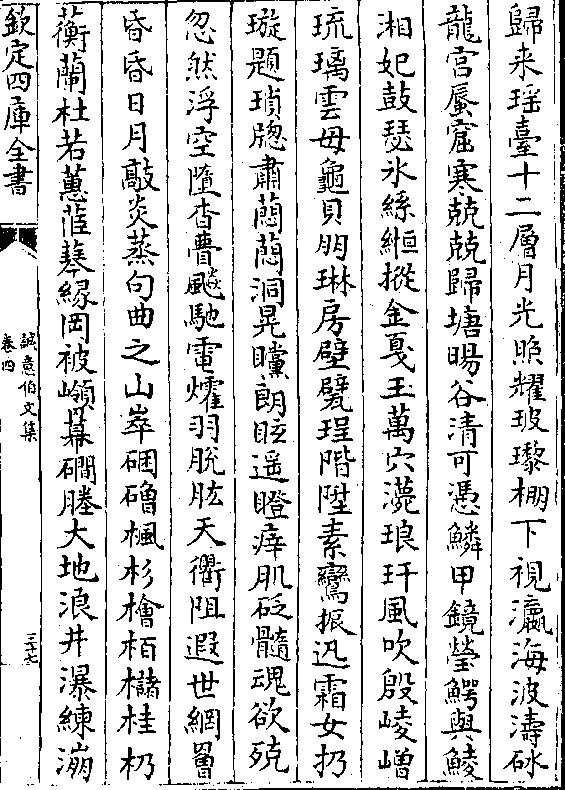 歸来瑶臺十二層月光照耀玻瓈棚下視瀛海波濤砯
龍宫蜃窟寒兢兢歸塘暘谷清可憑鱗甲鏡瑩鰐與鯪
湘妃鼓瑟氷絲縆摐金戛玉萬穴灇琅玕風吹殷崚嶒
琉璃雲母龜貝朋琳房壁甓珵階陞素鸞振迅霜女扔
璇題瑣牎肅藹藹洞晃矘朗眩遥瞪瘁肌砭髓魂欲殑
忽然浮空墮杳瞢飈馳雷燿羽脱肱天衢阻遐世網罾
昏昏日月敲炎蒸句曲之山崒硱磳楓杉檜栢櫧桂杒
蘅蘭杜若蕙菹藄緣岡被嶺幕磵塍大地浪井瀑練漰
欽定四庫全書
誠意伯文集
卷四
三十七